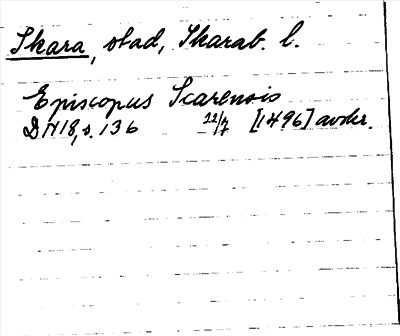 Skara, stad, Skarab. l.
Episcopus Scarensis
DN 18, s. 136 22/7 [1496] avskr.